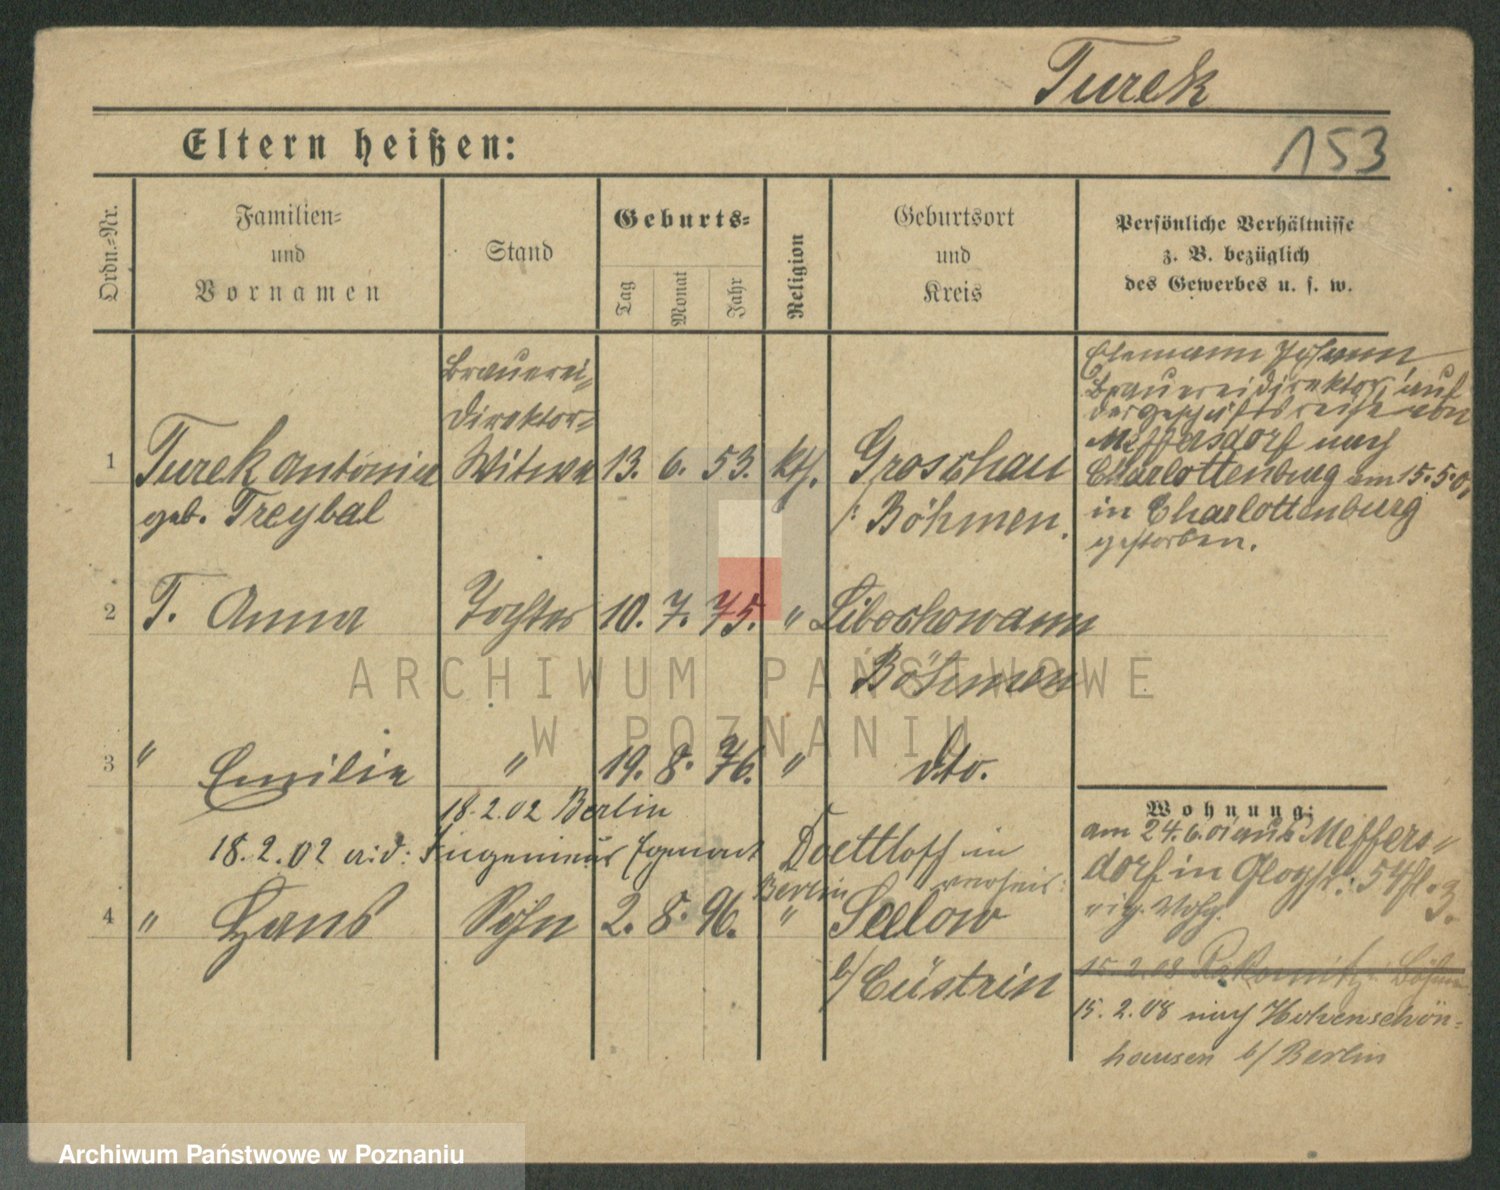 Turek
153
Eltern heißen:
Ordn.-Nr.
Familien-
und
Vornamen
Stand
Geburts-
Tag
Monat
Jahr
Religion
Geburtsort
und
Kreis
Persönliche Verhältnisse
z. B. bezüglich
des Gewerbes u. s. w.
Brauerei-
direktor-
1 Turek Antonia Witwe 13. 6. 53. kth. Groschau
geb. Treybal /: Böhmen.
Ehemann Johann
Brauereidirektor, auf
der Geschäftsreise von
Meffersdorf nach
Charlottenburg am 15.5.01
in Charlottenburg
gestorben.
2 T. Anna Tochter 10. 7. 75. " Liboschowann
Böhmen
3 " Emilie " 19. 8. 76. " dto.
18.2.02 Berlin
18.2.02 Ingenieur Egmont Doettloff in
Berlin verheir:
4 " Hans Sohn 2. 8. 96. " Seelow
b/ Cüstrin
Wohnung:
am 24.6.01 aus Meffers-
dorf in Glogstr: 54
eig. Wohg.
15.2.08 Rakonitz Böhmen
15.2.08 nach Hohenschön-
hausen b/ Berlin
ARCHIWUM PAŃSTWOWE
W POZNANIU
Archiwum Państwowe w Poznaniu